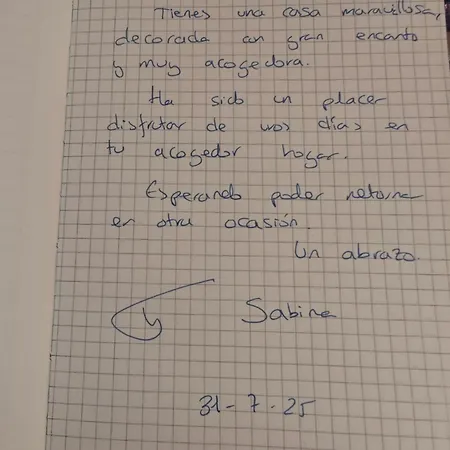 Tienes una casa maravillosa,
decorada con gran encanto
y muy acogedora.
Ha sido un placer
disfrutar de unos días en
tu acogedor hogar.
Esperando poder retorna
en otra ocasión.
Un abrazo.
y Sabine
31-7-25